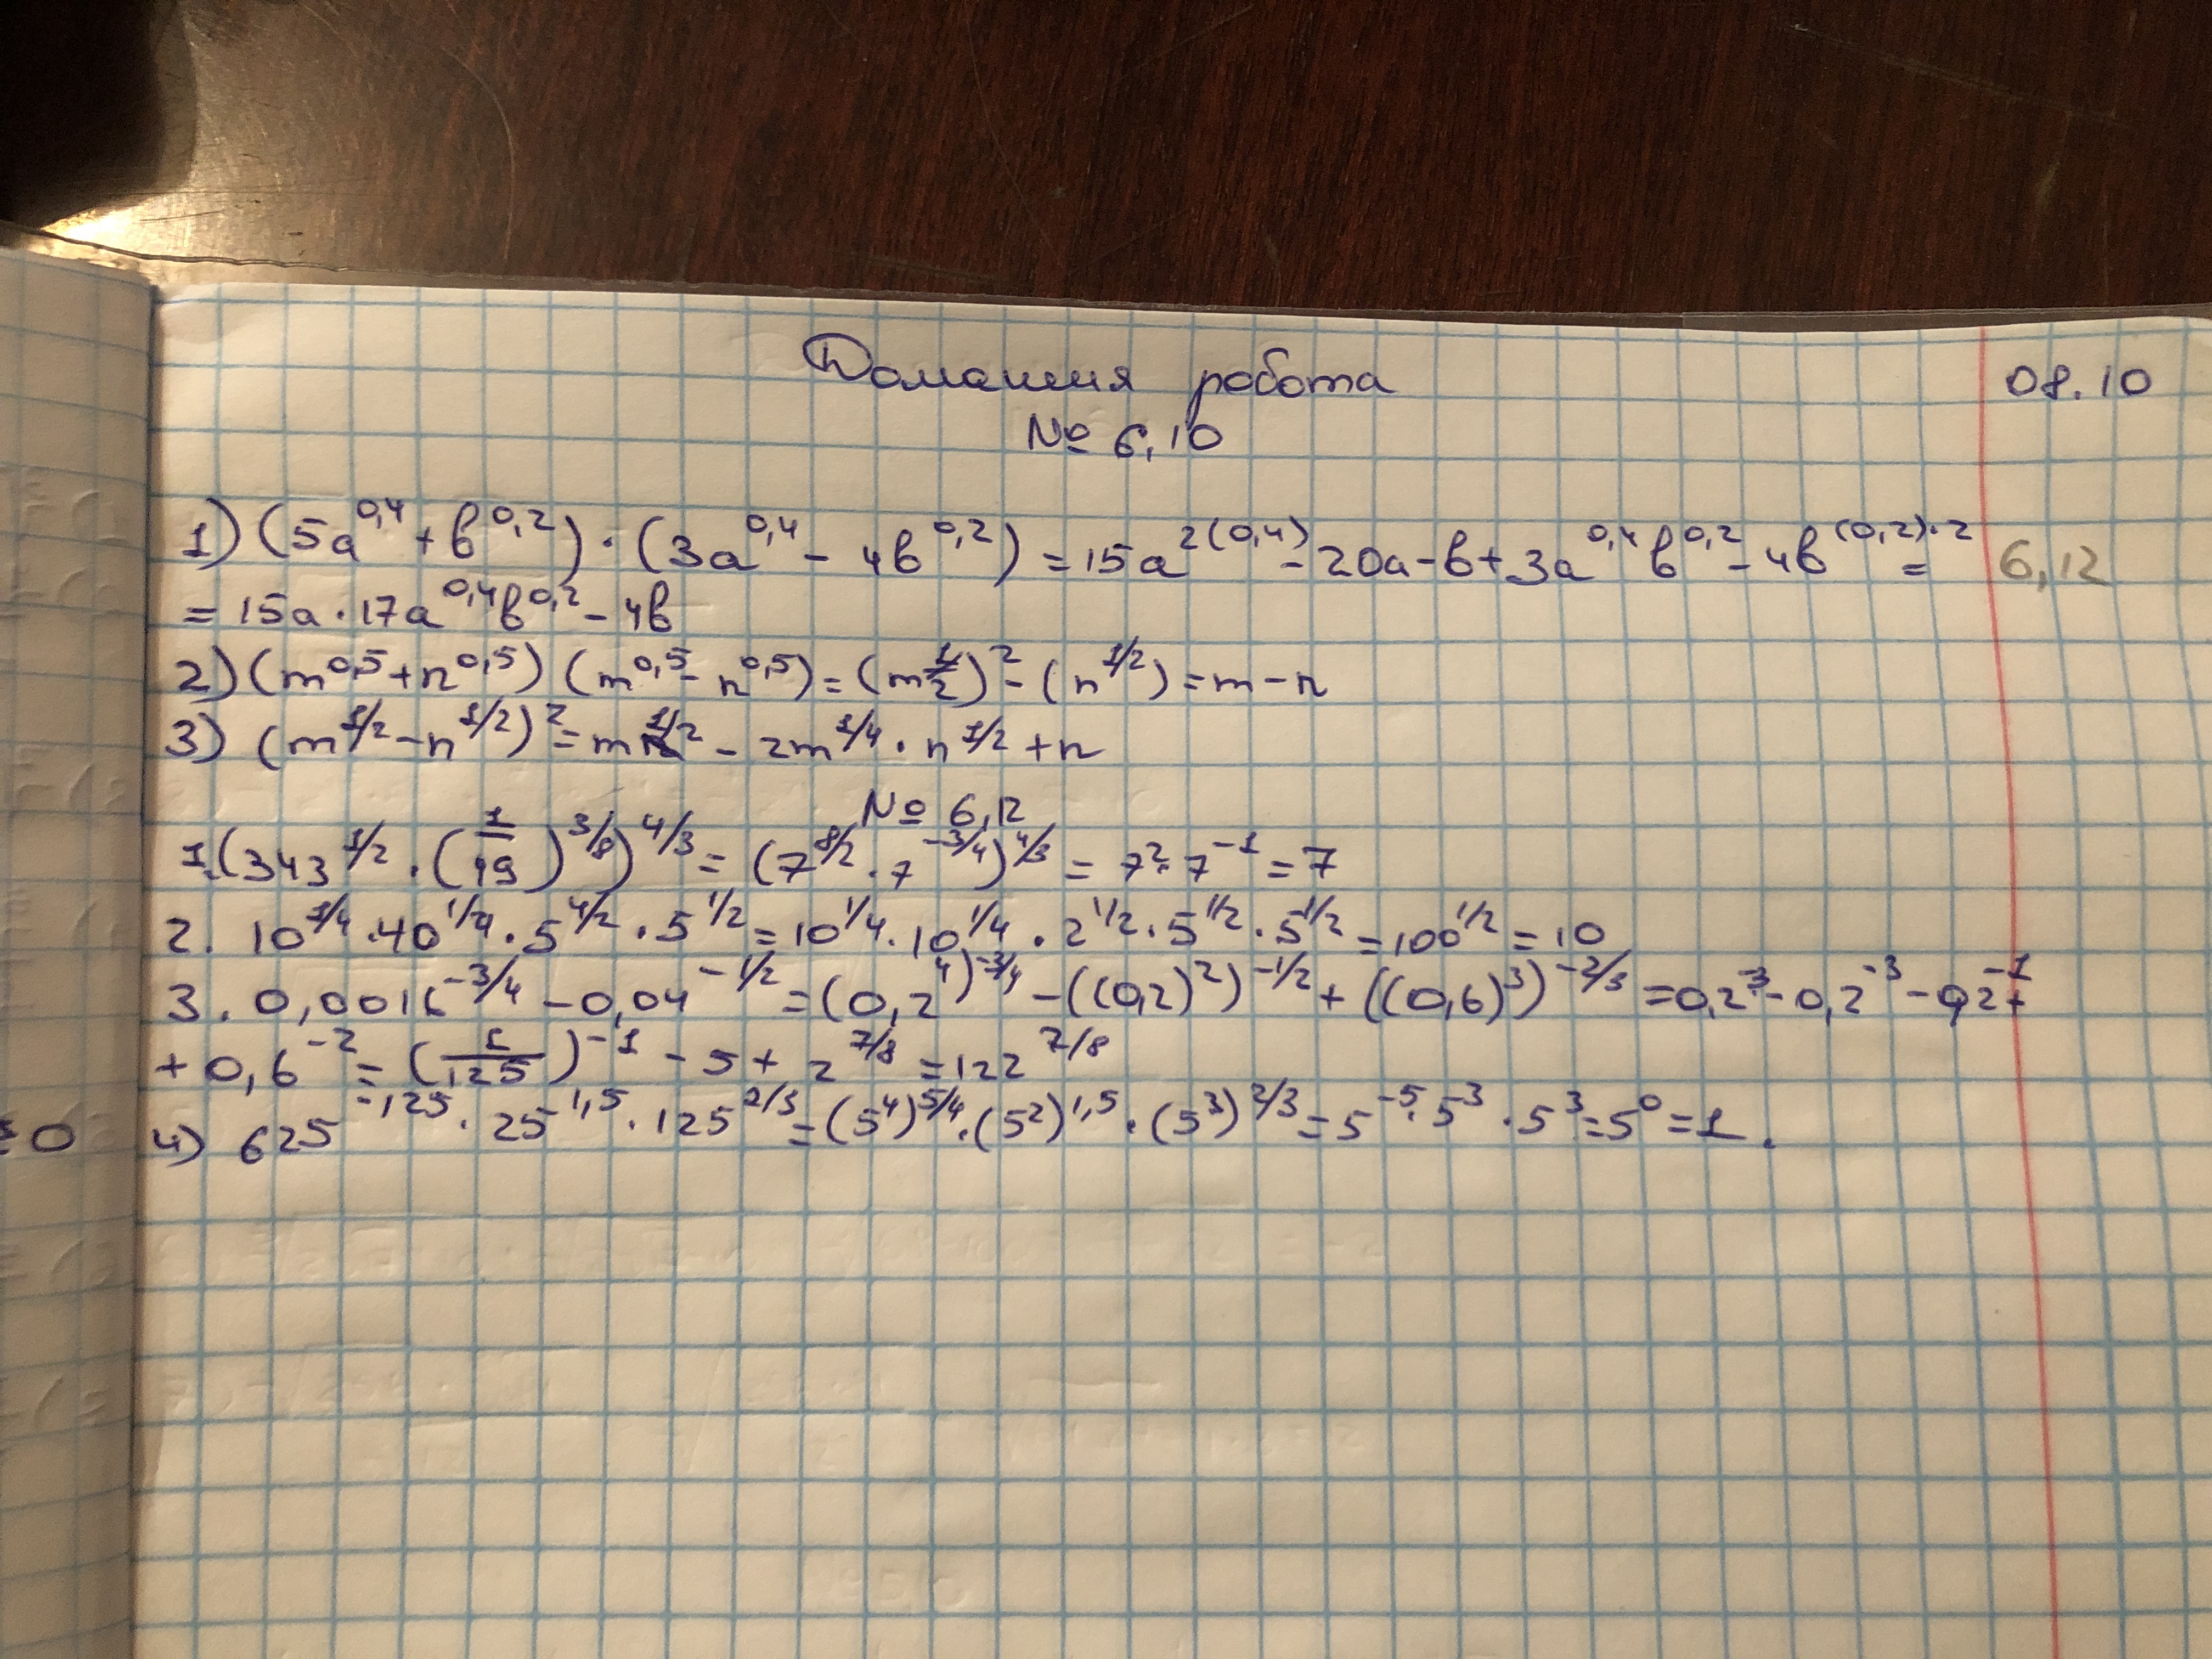 Домашня робота 08.10
№ 6,10
1) (5a^0,4 + b^0,2) · (3a^0,4 - 4b^0,2) = 15a^2(0,4) - 20a - b + 3a^0,4 b^0,2 - 4b^(0,2)·2 = 6,12
= 15a · 17a^0,4 b^0,2 - 4b
2) (m^0,5 + n^0,5) (m^0,5 - n^0,5) = (m^1/2)^2 - (n^1/2) = m - n
3) (m^1/2 - n^1/2)^2 = m^1/2 - 2m^1/4 · n^1/2 + n
№ 6,12
1. (343^1/2 · (1/49)^3/8)^4/3 = (7^8/2 · 7^-3/4)^4/3 = 7^2 · 7^-1 = 7
2. 10^1/4 · 40^1/4 · 5^4/2 · 5^1/2 = 10^1/4 · 10^1/4 · 2^1/2 · 5^1/2 · 5^1/2 = 100^1/2 = 10
3. 0,0016^-3/4 - 0,04^-1/2 = (0,2^4)^-3/4 - ((0,2)^2)^-1/2 + ((0,6)^3)^-2/3 = 0,2^-3 - 0,2^-3 - 0,2^-1 +
+ 0,6^-2 = (1/125)^-1 - 5 + 2^7/8 = 122^7/8
4) 625^=125 · 25^1,5 · 125^2/3 = (5^4)^5/4 · (5^2)^1,5 · (5^3)^2/3 = 5^-5 · 5^3 · 5^3 = 5^0 = 1.